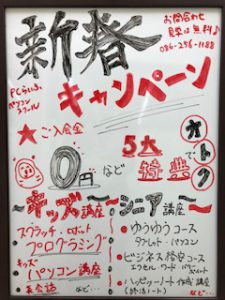 新春
お問合わせ
見学は無料♪
086-256-1188
PCらいふ
パソコン
スクール
キャンペーン
★ご入会金
0円
など
5大
特典
オトク
キッズ講座
スクラッチ・ロボット
プログラミング
キッズ
パソコン講座
英会話 など…
シニア講座
ゆうゆうコース
タブレット・パソコン
ビジネス格安コース
エクセル ワード パワーポイント
ハッピーノート作成講座
(終活ノート)
など…